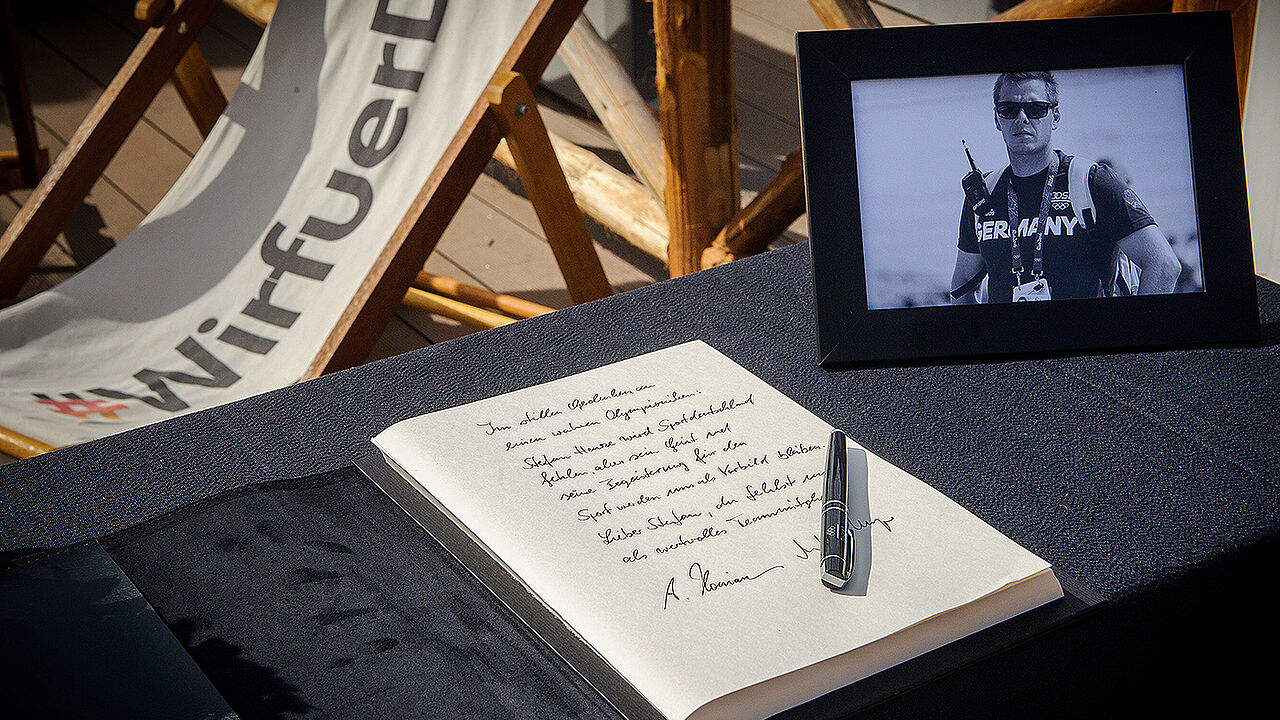 #WirfuerD
GERMANY
Im stillen Gedenken an
einen wahren Olympioniken:
Stefan Henze wird Sportdeutschland
fehlen, aber sein Geist und
seine Begeisterung für den
Sport werden uns als Vorbild bleiben.
Lieber Stefan, du fehlst uns
als wertvolles Teammitglied
A. Hörmann